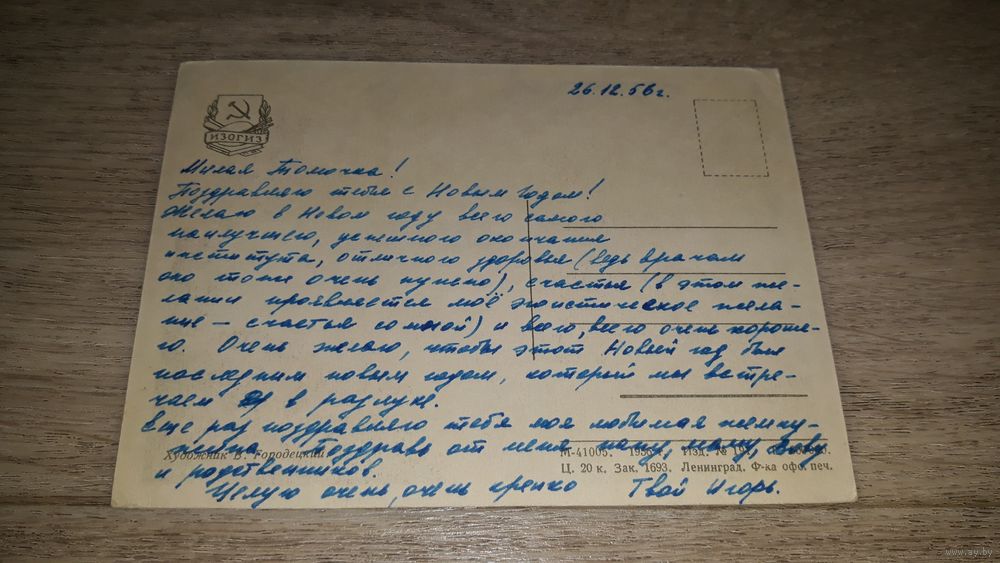 26.12.56г.
ИЗОГИЗ
Милая Томочка!
Поздравляю тебя с Новым Годом!
Желаю в Новом году всего самого
наилучшего, успешного окончания
института, отличного здоровья (ведь врачам
оно тоже очень нужно), счастья (в этом же-
лании проявляется моё эгоистическое жела-
ние – счастья со мной) и всего, всего очень хороше-
го. Очень желаю, чтобы этот Новый год был
последним новым годом, который мы встре-
чаем в разлуке.
Еще раз поздравляю тебя моя любимая жемчу-
жина. Поздравь от меня папу, маму,
и родственников.
Целую очень, очень крепко Твой Игорь.
Художник В. Городецкий
М-41005. 1956 г. Изд. №
Ц. 20 к. Зак. 1693. Ленинград. Ф-ка офс. печ.
www.ay.by